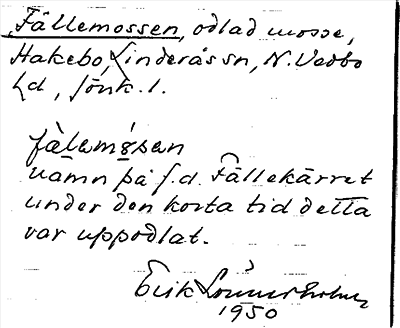 Fällemossen, odlad mosse,
Hakebo, Linderås sn, N. Vedbo
hd, Jönk. l.
fälemósen
namn på f.d. Fällekärret
under den korta tid detta
var uppodlat.
Erik
1950